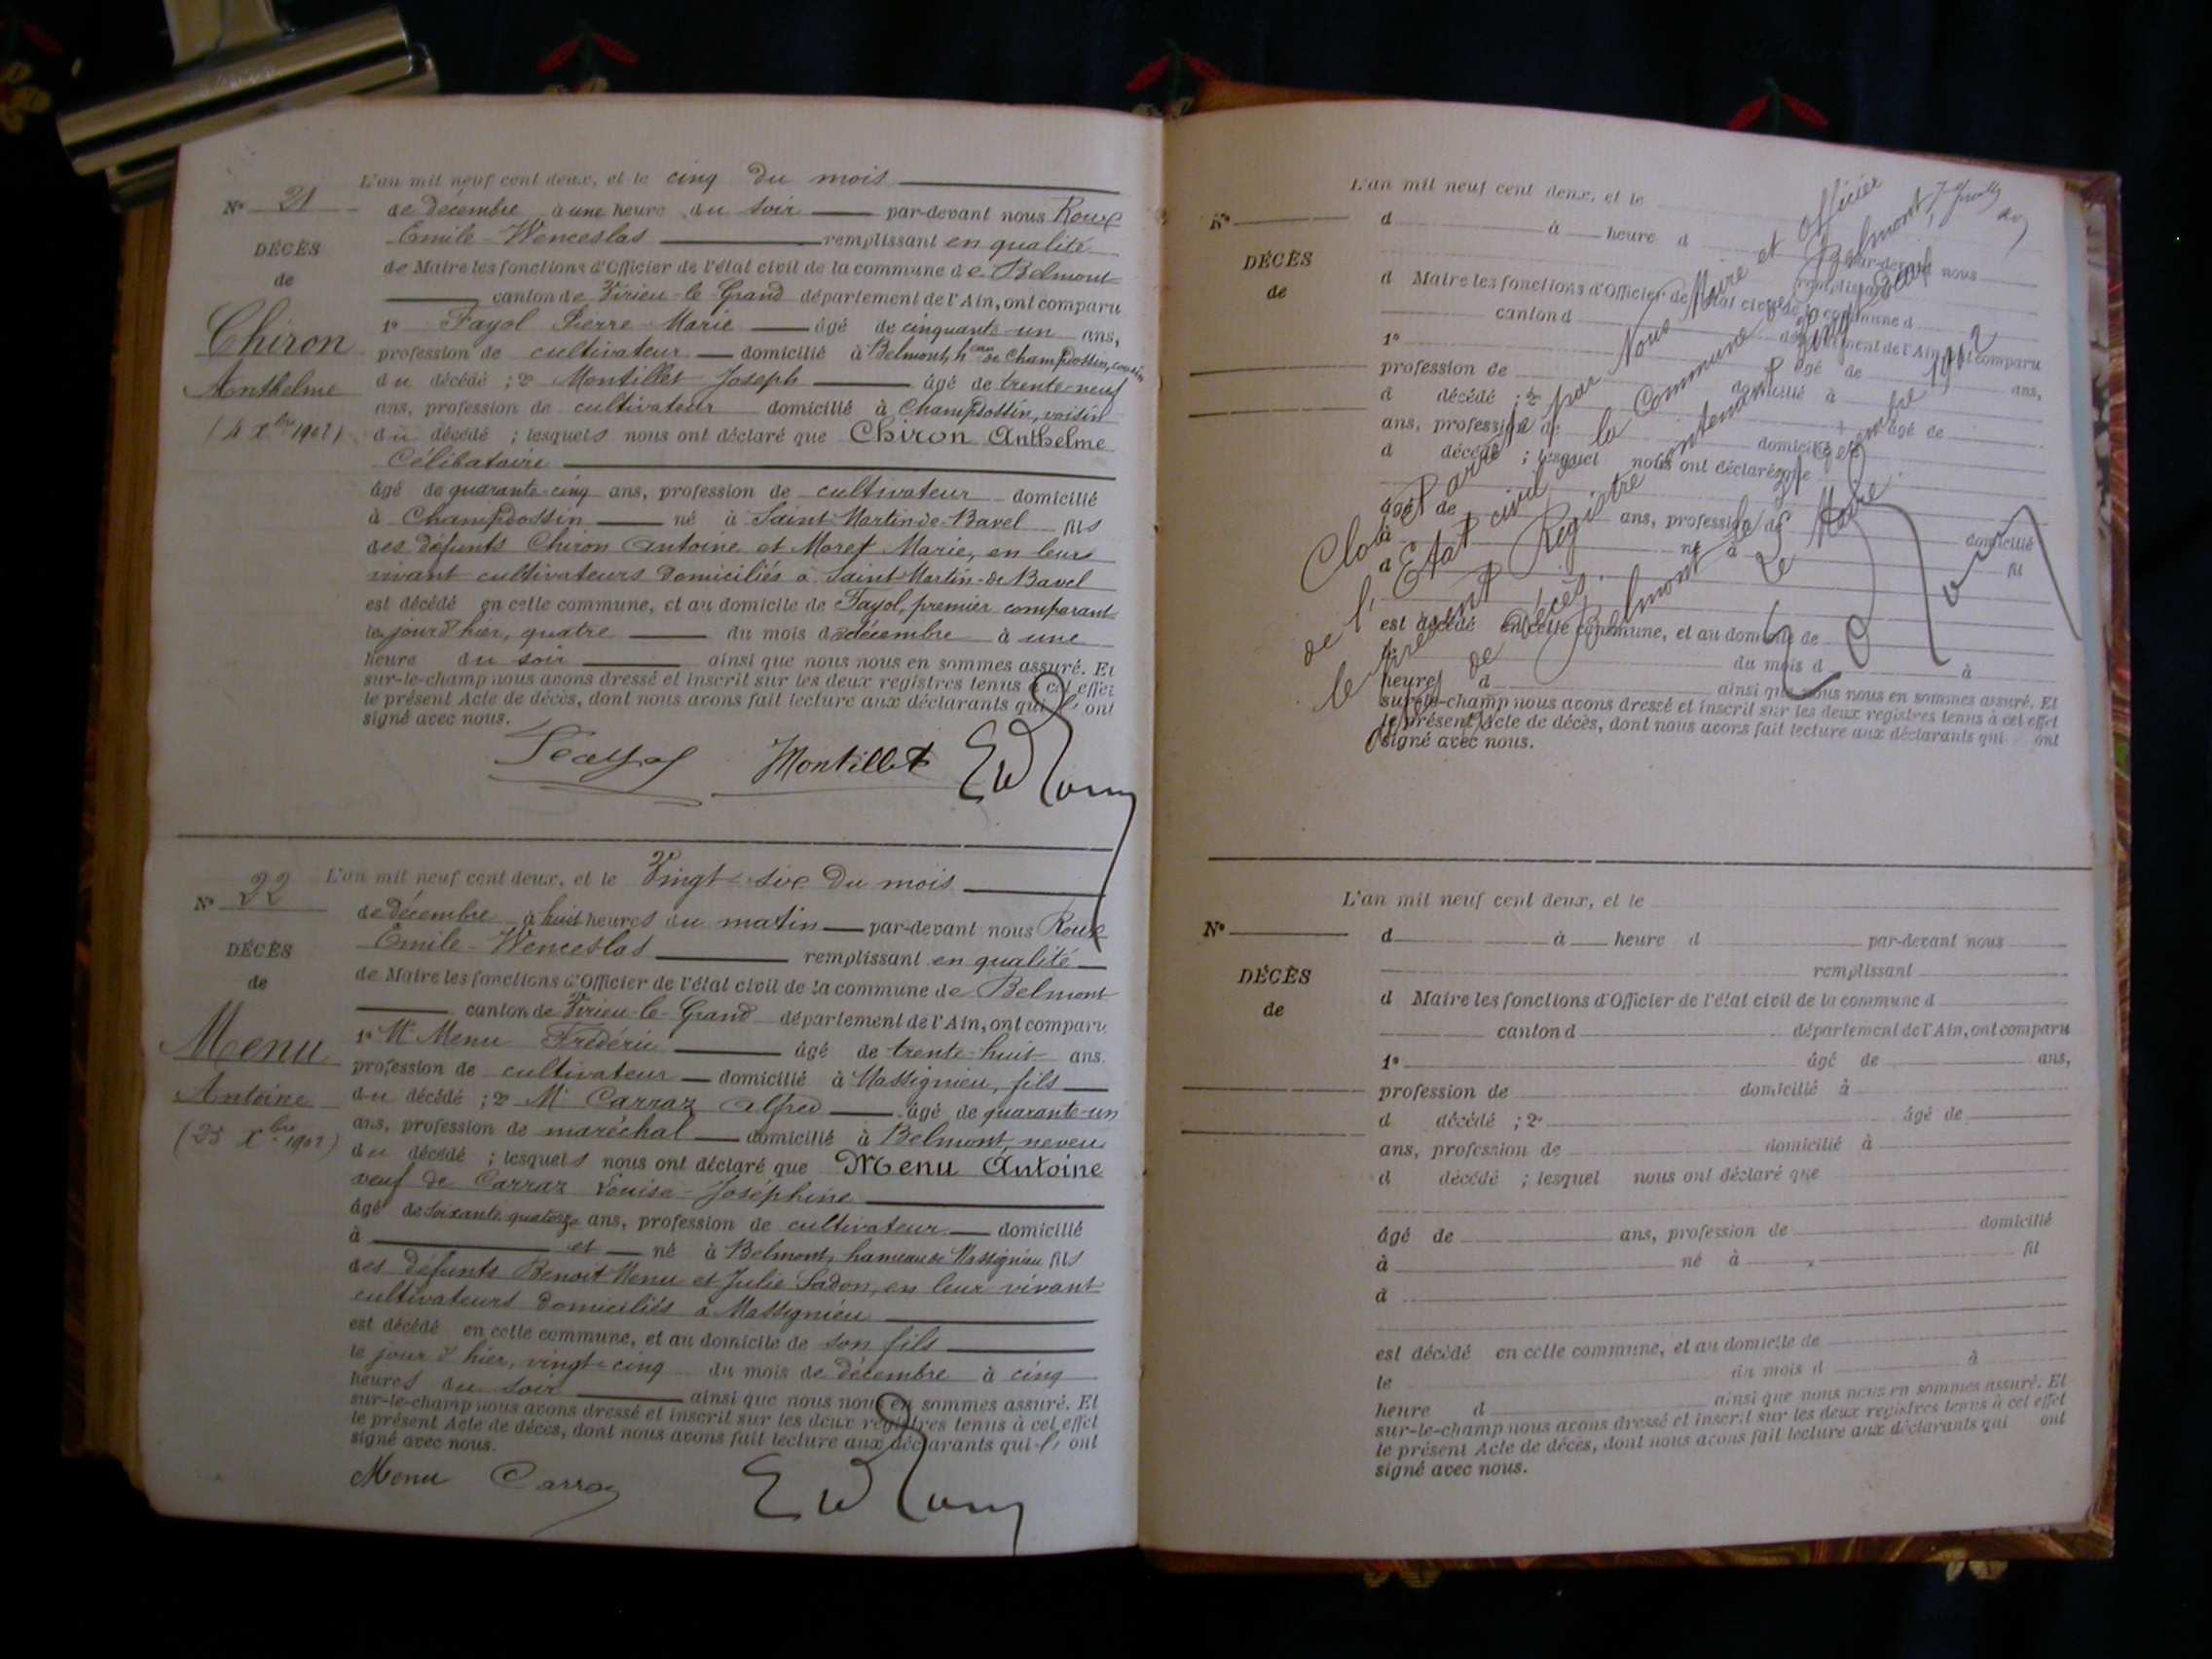 L'an mil neuf cent deux, et le cinq du mois
N° 21
de décembre à une heure du soir par-devant nous Roux
Emile-Wenceslas remplissant en qualité
DÉCÈS
de Maire les fonctions d'Officier de l'état civil de la commune de Belmont
de
canton de Virieu-le-Grand département de l'Ain, ont comparu
1° Fayol Pierre-Marie âgé de cinquante-un ans,
Chiron
profession de cultivateur domicilié à Belmont, h.eau de Champdossin, cousin
Anthelme
du décédé ; 2° Montillet Joseph âgé de trente-neuf
ans, profession de cultivateur domicilié à Champdossin, voisin
(4 Xbre 1902)
du décédé ; lesquels nous ont déclaré que Chiron Anthelme
Célibataire
âgé de quarante-cinq ans, profession de cultivateur domicilié
à Champdossin né à Saint-Martin-de-Bavel fils
des défunts Chiron Antoine et Moret Marie, en leur
vivant cultivateurs domiciliés à Saint-Martin-de-Bavel
est décédé en cette commune, et au domicile de Fayol, premier comparant
le jour d'hier, quatre du mois de décembre à une
heure du soir ainsi que nous nous en sommes assuré. Et
sur-le-champ nous avons dressé et inscrit sur les deux registres tenus à cet effet
le présent Acte de décès, dont nous avons fait lecture aux déclarants qui l'ont
signé avec nous.
Montillet
L'an mil neuf cent deux, et le Vingt-six du mois
N° 22
de décembre à huit heures du matin par-devant nous Roux
Emile-Wenceslas remplissant en qualité
DÉCÈS
de Maire les fonctions d'Officier de l'état civil de la commune de Belmont
de
canton de Virieu-le-Grand département de l'Ain, ont comparu
1° Mr Menu Frédéric âgé de trente-huit ans.
Menu
profession de cultivateur domicilié à Massignieu, fils
Antoine
du décédé ; 2° Mr Carraz Alfred âgé de quarante-un
(25 Xbre 1902)
ans, profession de maréchal domicilié à Belmont, neveu
du décédé ; lesquels nous ont déclaré que Menu Antoine
veuf de Carraz Louise-Joséphine
âgé de soixante quatorze ans, profession de cultivateur domicilié
à et né à Belmont, hameau de Massignieu fils
des défunts Benoit Menu et Julie Sadon, en leur vivant
cultivateurs domiciliés à Massignieu
est décédé en cette commune, et au domicile de son fils
le jour d'hier, vingt-cinq du mois de décembre à cinq
heures du soir ainsi que nous nous en sommes assuré. Et
sur-le-champ nous avons dressé et inscrit sur les deux registres tenus à cet effet
le présent Acte de décès, dont nous avons fait lecture aux déclarants qui l'ont
signé avec nous.
Menu Carraz
L'an mil neuf cent deux, et le
N°
d à heure d par-devant nous
remplissant
DÉCÈS
d Maire les fonctions d'Officier de l'état civil de la commune d
de
canton d département de l'Ain, ont comparu
1° âgé de ans,
profession de domicilié à
d décédé ; 2° âgé de
ans, profession de domicilié à
d décédé ; lesquel nous ont déclaré que
âgé de ans, profession de domicilié
à né à fil
d
est décédé en cette commune, et au domicile de
le du mois d à
heure d ainsi que nous nous en sommes assuré. Et
sur-le-champ nous avons dressé et inscrit sur les deux registres tenus à cet effet
le présent Acte de décès, dont nous avons fait lecture aux déclarants qui ont
signé avec nous.
Clos et arrêté par Nous Maire et Officier
de l'Etat civil de la Commune de Belmont,
le présent Registre contenant vingt-deux
actes de décès.
Belmont le 31 décembre 1902
Le Maire
L'an mil neuf cent deux, et le
N°
d à heure d par-devant nous
remplissant
DÉCÈS
d Maire les fonctions d'Officier de l'état civil de la commune d
de
canton d département de l'Ain, ont comparu
1° âgé de ans,
profession de domicilié à
d décédé ; 2° âgé de
ans, profession de domicilié à
d décédé ; lesquel nous ont déclaré que
âgé de ans, profession de domicilié
à né à fil
d
est décédé en cette commune, et au domicile de
le du mois d à
heure d ainsi que nous nous en sommes assuré. Et
sur-le-champ nous avons dressé et inscrit sur les deux registres tenus à cet effet
le présent Acte de décès, dont nous avons fait lecture aux déclarants qui ont
signé avec nous.